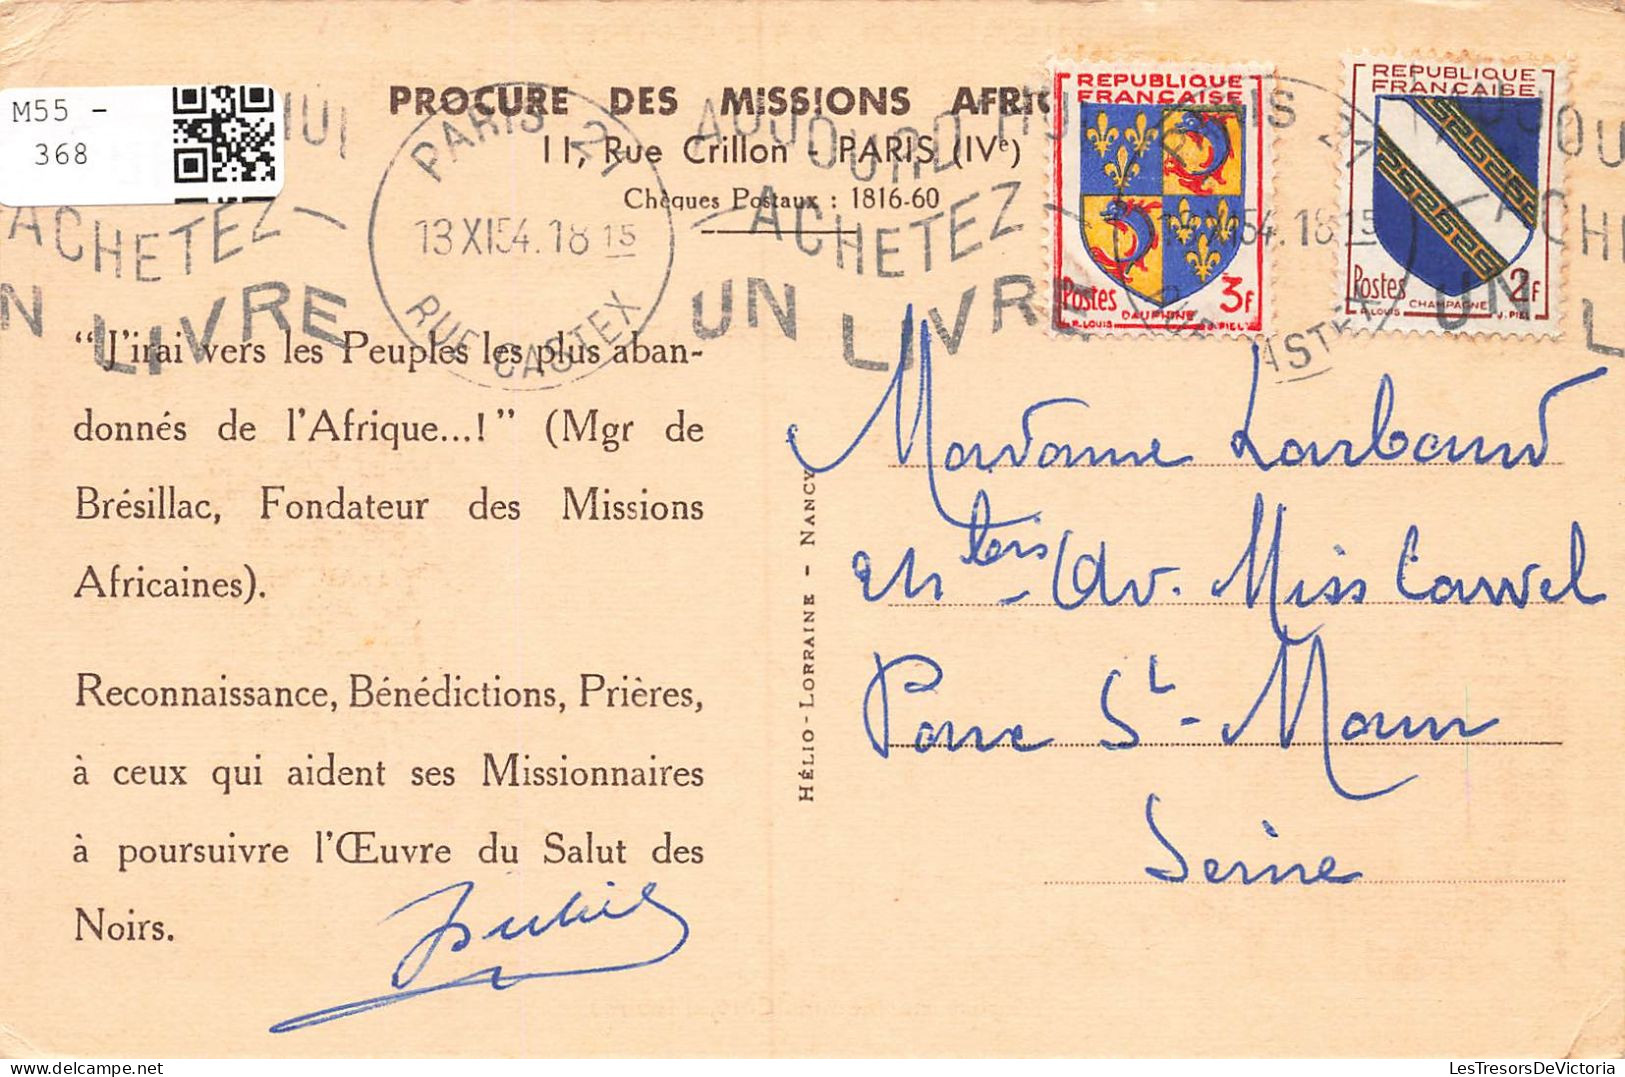 M55 -
368
PROCURE DES MISSIONS AFRIC
11, Rue Crillon - PARIS (IVe)
Chèques Postaux : 1816-60
PARIS
13 XI 54. 18 15
RUE CASTEX
AUJOURD'HUI
ACHETEZ
UN LIVRE
REPUBLIQUE
FRANÇAISE
Postes 3F
DAUPHINE
R. LOUIS J. PIEL
REPUBLIQUE
FRANÇAISE
Postes 2F
CHAMPAGNE
R. LOUIS J. PIEL
"J'irai vers les Peuples les plus aban-
donnés de l'Afrique...!" (Mgr de
Brésillac, Fondateur des Missions
Africaines).
Reconnaissance, Bénédictions, Prières,
à ceux qui aident ses Missionnaires
à poursuivre l'Œuvre du Salut des
Noirs.
HÉLIO-LORRAINE - NANCY
Madame Larbaud
ter Av. Miss Cawel
St-Maur
Seine
LesTresorsDeVictoria